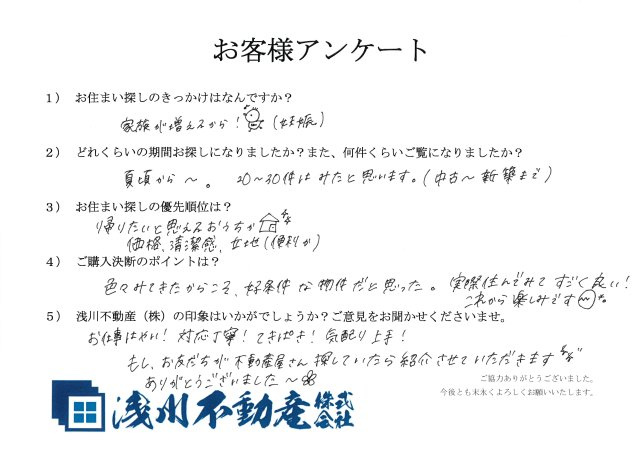 お客様アンケート
1） お住まい探しのきっかけはなんですか？
家族が増えるから！(妊娠)
2） どれくらいの期間お探しになりましたか？また、何件くらいご覧になりましたか？
夏頃から〜。 20〜30件はみたと思います。(中古〜新築まで)
3） お住まい探しの優先順位は？
帰りたいと思えるおうちか
価格、清潔感、立地(便利か)
4） ご購入決断のポイントは？
色々みてきたからこそ、好条件な物件だと思った。実際住んでみてすごく良い！
これから楽しみです
5） 浅川不動産（株）の印象はいかがでしょうか？ご意見をお聞かせくださいませ。
お仕事はやい！対応丁寧！てきぱき！気配り上手！
もし、お友だちが不動産屋さん探していたら紹介させていただきます
ありがとうございました〜
ご協力ありがとうございました。
今後とも末永くよろしくお願いいたします。
浅川不動産株式会社